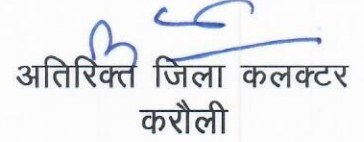 अतिरिक्त जिला कलक्टर
करौली